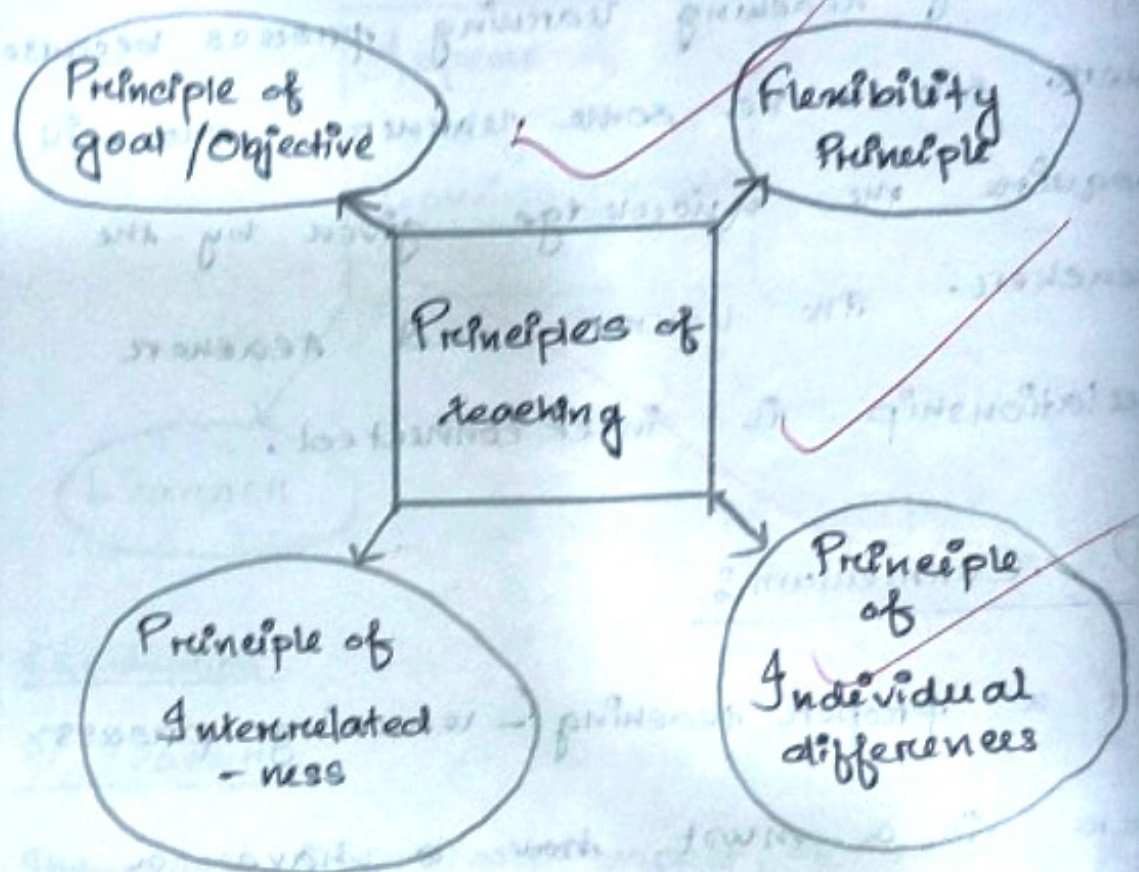 Principle of
goal /Objective
Flexibility
Principle
Principles of
teaching
Principle of
Interrelated
- ness
Principle
of
Individual
differences